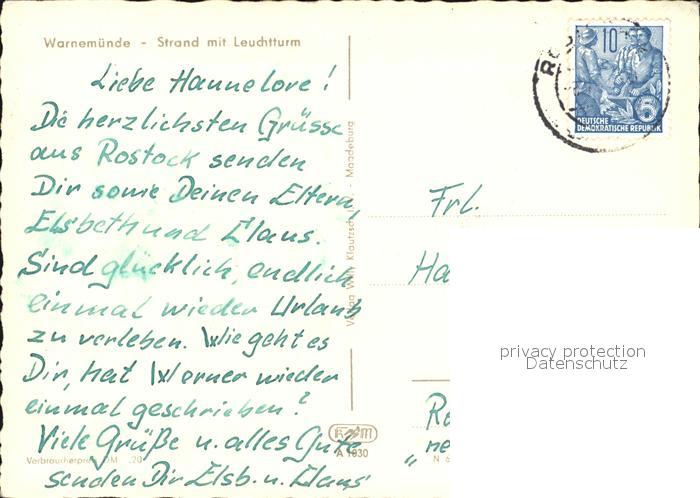 Warnemünde - Strand mit Leuchtturm
Liebe Hannelore!
Die herzlichsten Grüsse
aus Rostock senden
Dir sowie Deinen Eltern,
Elsbeth und Claus.
Sind glücklich, endlich
einmal wieder Urlaub
zu verleben. Wie geht es
Dir, hat Werner wieder
einmal geschrieben?
Viele Grüße u. alles Gute
senden Dir Elsb. u. Claus
Verbraucherpreis DM .20
Verlag Willi Klautzsch, Magdeburg
A 1030
10
6
DEUTSCHE
DEMOKRATISCHE REPUBLIK
Frl.
Ha
privacy protection
Datenschutz
N 6